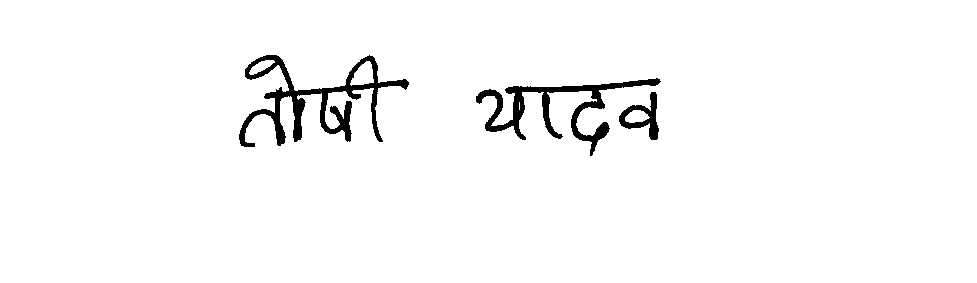 तोषी यादव